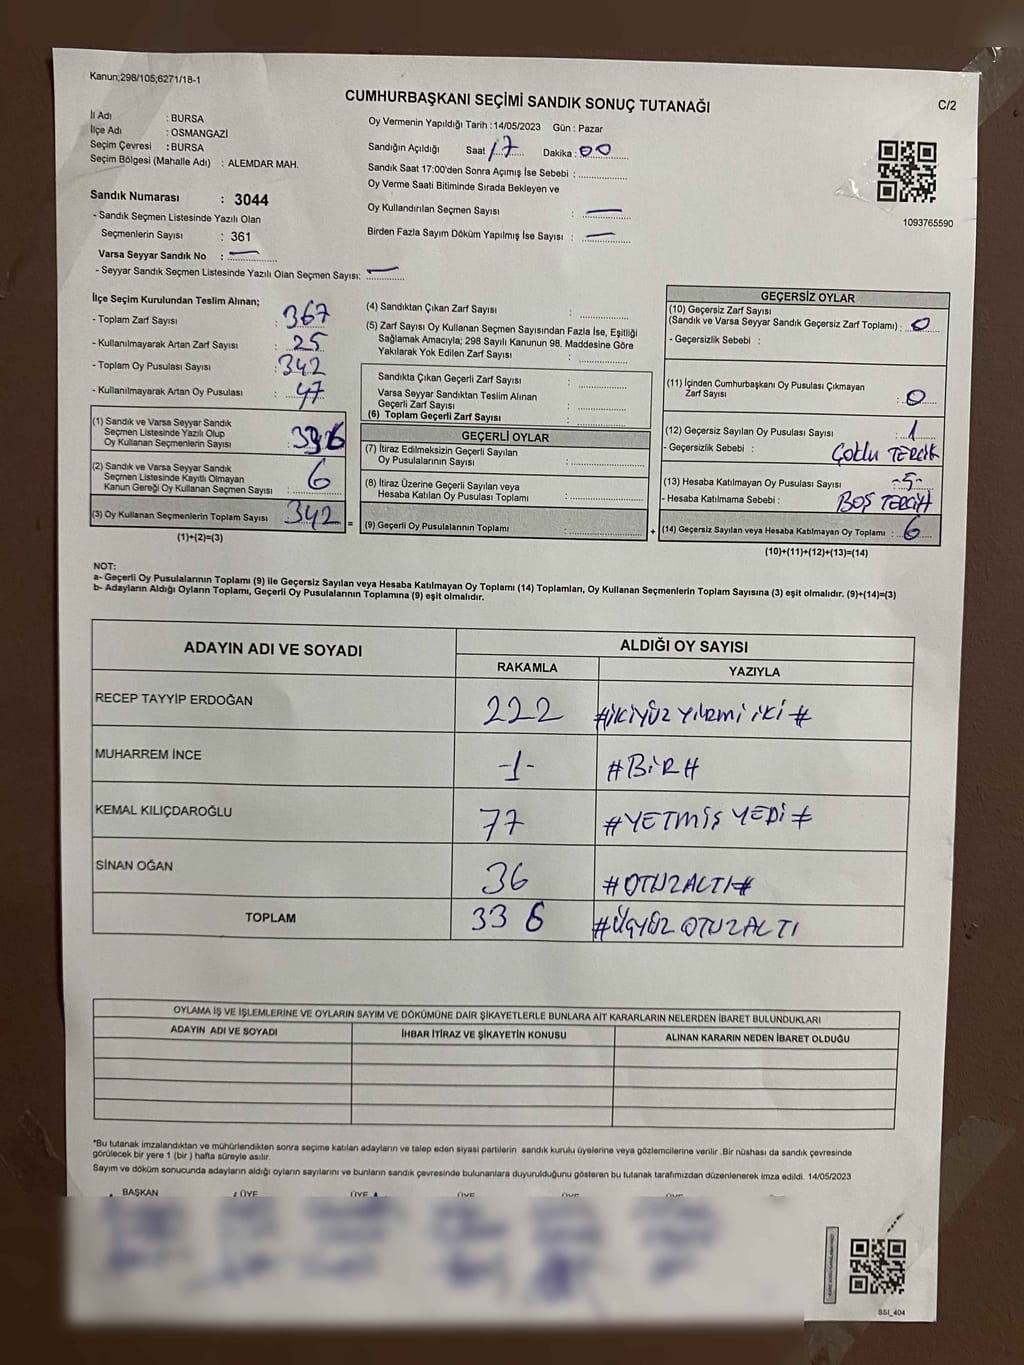 Kanun;298/105;6271/18-1
CUMHURBAŞKANI SEÇİMİ SANDIK SONUÇ TUTANAĞI
C/2
İl Adı : BURSA
İlçe Adı : OSMANGAZİ
Seçim Çevresi : BURSA
Seçim Bölgesi (Mahalle Adı) : ALEMDAR MAH.
Sandık Numarası : 3044
- Sandık Seçmen Listesinde Yazılı Olan
Seçmenlerin Sayısı : 361
Varsa Seyyar Sandık No : —
- Seyyar Sandık Seçmen Listesinde Yazılı Olan Seçmen Sayısı: —
Oy Vermenin Yapıldığı Tarih :14/05/2023 Gün : Pazar
Sandığın Açıldığı Saat 17 Dakika : 00
Sandık Saat 17:00'den Sonra Açımış İse Sebebi :
Oy Verme Saati Bitiminde Sırada Bekleyen ve
Oy Kullandırılan Seçmen Sayısı : —
Birden Fazla Sayım Döküm Yapılmış İse Sayısı : —
1093765590
İlçe Seçim Kurulundan Teslim Alınan;
- Toplam Zarf Sayısı : 367
- Kullanılmayarak Artan Zarf Sayısı : 25
- Toplam Oy Pusulası Sayısı : 342
- Kullanılmayarak Artan Oy Pusulası : 47
(1) Sandık ve Varsa Seyyar Sandık
Seçmen Listesinde Yazılı Olup
Oy Kullanan Seçmenlerin Sayısı :
(2) Sandık ve Varsa Seyyar Sandık
Seçmen Listesinde Kayıtlı Olmayan
Kanun Gereği Oy Kullanan Seçmen Sayısı : 6
(3) Oy Kullanan Seçmenlerin Toplam Sayısı : 342 =
(1)+(2)=(3)
(4) Sandıktan Çıkan Zarf Sayısı :
(5) Zarf Sayısı Oy Kullanan Seçmen Sayısından Fazla İse, Eşitliği
Sağlamak Amacıyla; 298 Sayılı Kanunun 98. Maddesine Göre
Yakılarak Yok Edilen Zarf Sayısı :
Sandıkta Çıkan Geçerli Zarf Sayısı :
Varsa Seyyar Sandıktan Teslim Alınan
Geçerli Zarf Sayısı :
(6) Toplam Geçerli Zarf Sayısı :
GEÇERLİ OYLAR
(7) İtiraz Edilmeksizin Geçerli Sayılan
Oy Pusulalarının Sayısı :
(8) İtiraz Üzerine Geçerli Sayılan veya
Hesaba Katılan Oy Pusulası Toplamı :
(9) Geçerli Oy Pusulalarının Toplamı : +
GEÇERSİZ OYLAR
(10) Geçersiz Zarf Sayısı
(Sandık ve Varsa Seyyar Sandık Geçersiz Zarf Toplamı) : 0
- Geçersizlik Sebebi :
(11) İçinden Cumhurbaşkanı Oy Pusulası Çıkmayan
Zarf Sayısı : 0
(12) Geçersiz Sayılan Oy Pusulası Sayısı : 1
- Geçersizlik Sebebi : Çoklu TERCİH
(13) Hesaba Katılmayan Oy Pusulası Sayısı -5-
- Hesaba Katılmama Sebebi : BOŞ TERCİH
(14) Geçersiz Sayılan veya Hesaba Katılmayan Oy Toplamı : 6
(10)+(11)+(12)+(13)=(14)
NOT:
a- Geçerli Oy Pusulalarının Toplamı (9) ile Geçersiz Sayılan veya Hesaba Katılmayan Oy Toplamı (14) Toplamları, Oy Kullanan Seçmenlerin Toplam Sayısına (3) eşit olmalıdır. (9)+(14)=(3)
b- Adayların Aldığı Oyların Toplamı, Geçerli Oy Pusulalarının Toplamına (9) eşit olmalıdır.
ADAYIN ADI VE SOYADI
ALDIĞI OY SAYISI
RAKAMLA YAZIYLA
RECEP TAYYİP ERDOĞAN 222 #İKİYÜZ YİRMİ İKİ#
MUHARREM İNCE -1- #BİR#
KEMAL KILIÇDAROĞLU 77 #YETMİŞ YEDİ#
SİNAN OĞAN 36 #OTUZALTI#
TOPLAM 336 #ÜÇYÜZ OTUZALTI
OYLAMA İŞ VE İŞLEMLERİNE VE OYLARIN SAYIM VE DÖKÜMÜNE DAİR ŞİKAYETLERLE BUNLARA AİT KARARLARIN NELERDEN İBARET BULUNDUKLARI
ADAYIN ADI VE SOYADI İHBAR İTİRAZ VE ŞİKAYETİN KONUSU ALINAN KARARIN NEDEN İBARET OLDUĞU
*Bu tutanak imzalandıktan ve mühürlendikten sonra seçime katılan adayların ve talep eden siyasi partilerin sandık kurulu üyelerine veya gözlemcilerine verilir .Bir nüshası da sandık çevresinde
görülecek bir yere 1 (bir ) hafta süreyle asılır.
Sayım ve döküm sonucunda adayların aldığı oyların sayılarını ve bunların sandık çevresinde bulunanlara duyurulduğunu gösteren bu tutanak tarafımızdan düzenlenerek imza edildi. 14/05/2023
BAŞKAN ÜYE ÜYE ÜYE ÜYE ÜYE
SSI_404